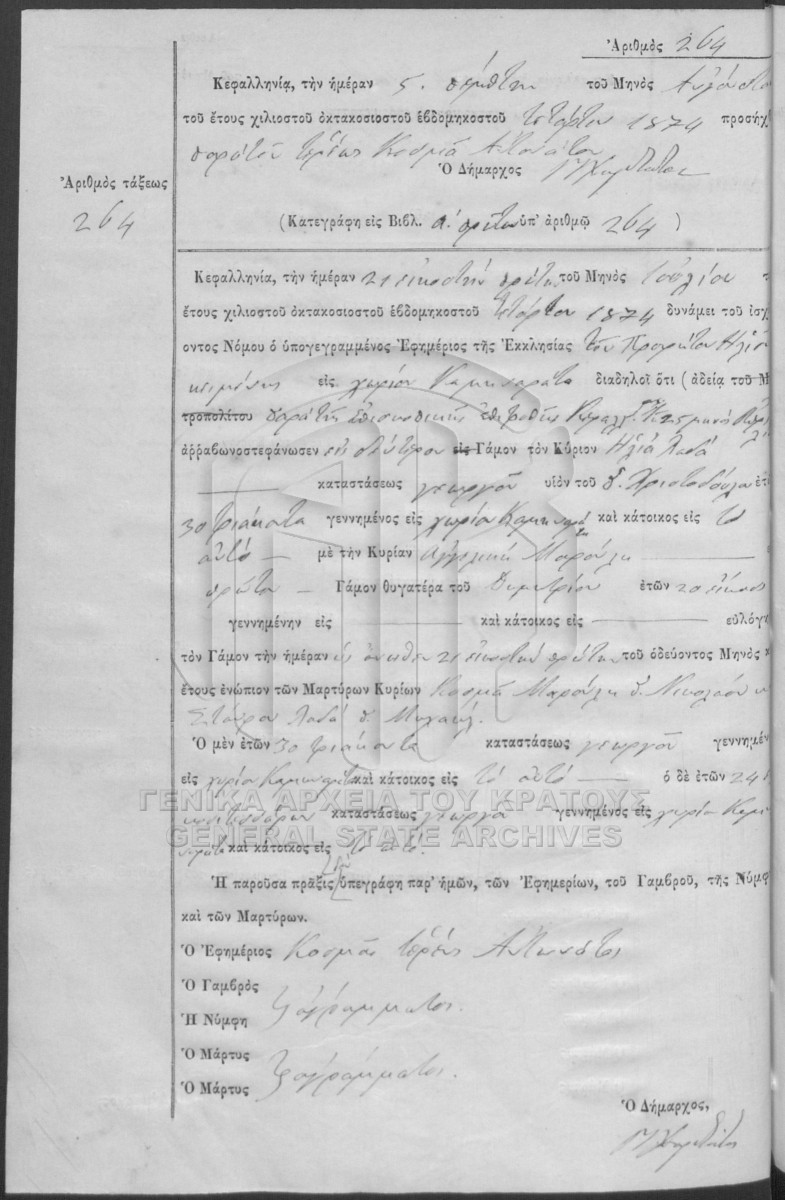 Ἀριθμὸς 264
Κεφαλληνίᾳ, τὴν ἡμέραν 5. πέμπτην τοῦ Μηνὸς Αὐγούστου
τοῦ ἔτους χιλιοστοῦ ὀκτακοσιοστοῦ ἑβδομηκοστοῦ τετάρτου 1874 προσήχ
παρὰ τοῦ ἱερέως Κοσμᾶ
Ὁ Δήμαρχος
Ἀριθμὸς τάξεως
264
(Κατεγράφη εἰς Βιβλ. α. πρῶτον ὑπ' ἀριθμῷ 264)
Κεφαλληνίᾳ, τὴν ἡμέραν 21 εἰκοστὴν πρώτην τοῦ Μηνὸς Ἰουλίου τ
ἔτους χιλιοστοῦ ὀκτακοσιοστοῦ ἑβδομηκοστοῦ τετάρτου 1874 δυνάμει τοῦ ἰσχ
οντος Νόμου ὁ ὑπογεγραμμένος Ἐφημέριος τῆς Ἐκκλησίας τοῦ Προφήτου Ἠλιοῦ
κειμένης εἰς χωρίον Καμηναράτα διαδηλοῖ ὅτι (ἀδείᾳ τοῦ Μ
τροπολίτου παρὰ τῆς ἐπισκοπικῆς ἐπιτροπῆς
ἀῤῥαβωνοστεφάνωσεν εἰς δεύτερον εἰς Γάμον τὸν Κύριον Ἠλία Λαδᾶ
καταστάσεως γεωργοῦ υἱὸν τοῦ π. Χριστοδούλου ἐτ
30 τριάκοντα γεννημένος εἰς χωρίον Καμηναράτα καὶ κάτοικος εἰς τὸ
αὐτό μὲ τὴν Κυρίαν Ἀγγελικὴ Μαρούλη
πρῶτον Γάμον θυγατέρα τοῦ Δημητρίου ἐτῶν 20 εἴκοσι
γεννημένην εἰς καὶ κάτοικος εἰς εὐλόγη
τὸν Γάμον τὴν ἡμέραν ὡς ἄνωθεν 21 εἰκοστὴν πρώτην τοῦ ὁδεύοντος Μηνὸς κ
ἔτους ἐνώπιον τῶν Μαρτύρων Κυρίων Κοσμᾶ Μαρούλη π. Νικολάου
Σταύρου Λαδᾶ π. Μιχαήλ.
Ὁ μὲν ἐτῶν 30 τριάκοντα καταστάσεως γεωργοῦ γεννημέν
εἰς χωρίον Καμηναράτα καὶ κάτοικος εἰς τὸ αὐτό ὁ δὲ ἐτῶν 24
καταστάσεως γεωργοῦ γεννημένος εἰς χωρίον Καμη
ναράτα καὶ κάτοικος εἰς τὸ αὐτό.
ΓΕΝΙΚΑ ΑΡΧΕΙΑ ΤΟΥ ΚΡΑΤΟΥΣ
GENERAL STATE ARCHIVES
Ἡ παροῦσα πρᾶξις ὑπεγράφη παρ' ἡμῶν, τῶν Ἐφημερίων, τοῦ Γαμβροῦ, τῆς Νύμφ
καὶ τῶν Μαρτύρων.
Ὁ Ἐφημέριος Κοσμᾶς ἱερεὺς
Ὁ Γαμβρὸς
Ἡ Νύμφη ἀγράμματοι.
Ὁ Μάρτυς
Ὁ Μάρτυς ἀγράμματοι.
Ὁ Δήμαρχος,